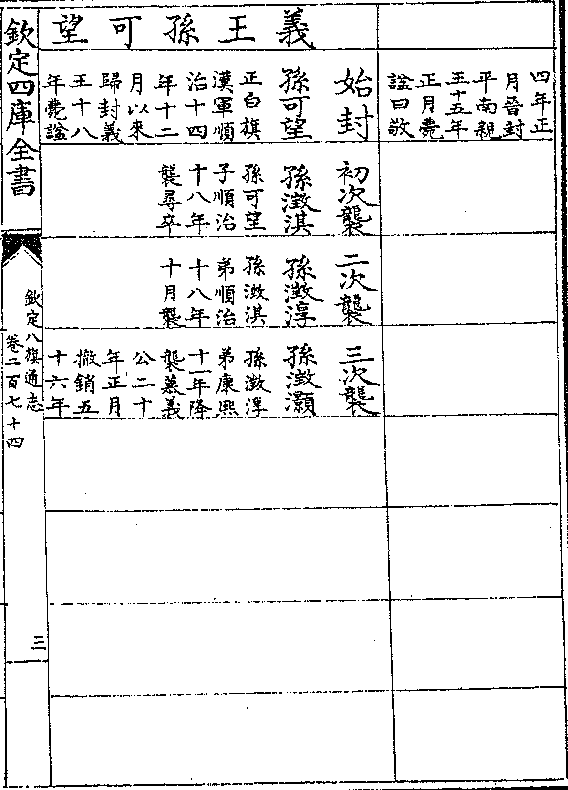 四年正
月晉封
平南親
王十五年
正月薨
諡曰敬
義王孫可望
始封
孫可望
正白旗
漢軍順
治十四
年十二
月以來
歸封義
王十八
年薨諡
初次襲
孫澂淇
孫可望
子順治
十八年
襲尋卒
二次襲
孫澂淳
孫澂淇
弟順治
十八年
十月襲
三次襲
孫澂灝
孫澂淳
弟康熙
十一年降
襲慕義
公二十
年正月
撤銷五
十六年
欽定四庫全書
欽定八旗通志
卷二百七十四
三